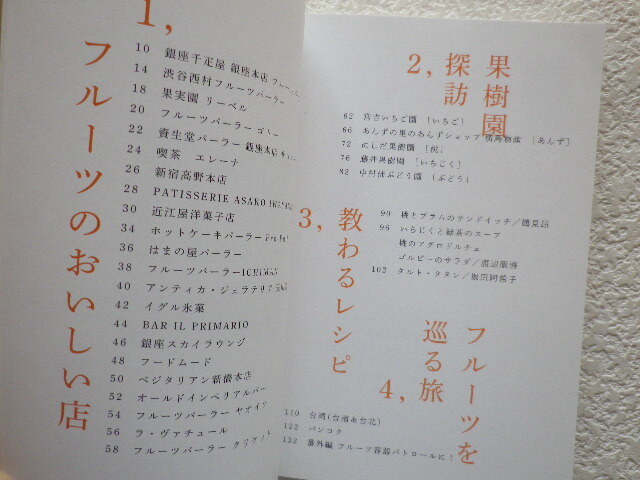 1,
フルーツのおいしい店
10 銀座千疋屋 銀座本店
14 渋谷西村フルーツパーラー
18 果実園 リーベル
20 フルーツパーラー ゴトー
22 資生堂パーラー 銀座本店
24 喫茶 エレーナ
26 新宿高野本店
28 PATISSERIE ASAKO
30 近江屋洋菓子店
34 ホットケーキパーラー
36 はまの屋パーラー
38 フルーツパーラー
40 アンティカ・ジェラテリア
42 イグル氷菓
44 BAR IL PRIMARIO
46 銀座スカイラウンジ
48 フードムード
50 ベジタリアン新橋本店
52 オールドインペリアルバー
54 フルーツパーラー ヤオイソ
56 ラ・ヴァチュール
58 フルーツパーラー クリケット
2,
果樹園
探訪
62 宮吉いちご園 [いちご]
66 あんずの里のあんずショップ [あんず]
72 にしだ果樹園 [桃]
76 藤井果樹園 [いちじく]
82 中村伎ぶどう園 [ぶどう]
3,
教わるレシピ
90 桃とプラムのサンドイッチ/鶴見諒
96 いちじくと緑茶のスープ
桃のアグロドルチェ
ゴルビーのサラダ/渡辺康啓
102 タルト・タタン/飯田
4,
フルーツを
巡る旅
110 台湾(台南&台北)
122 バンコク
132 番外編 フルーツ容器パトロールに!